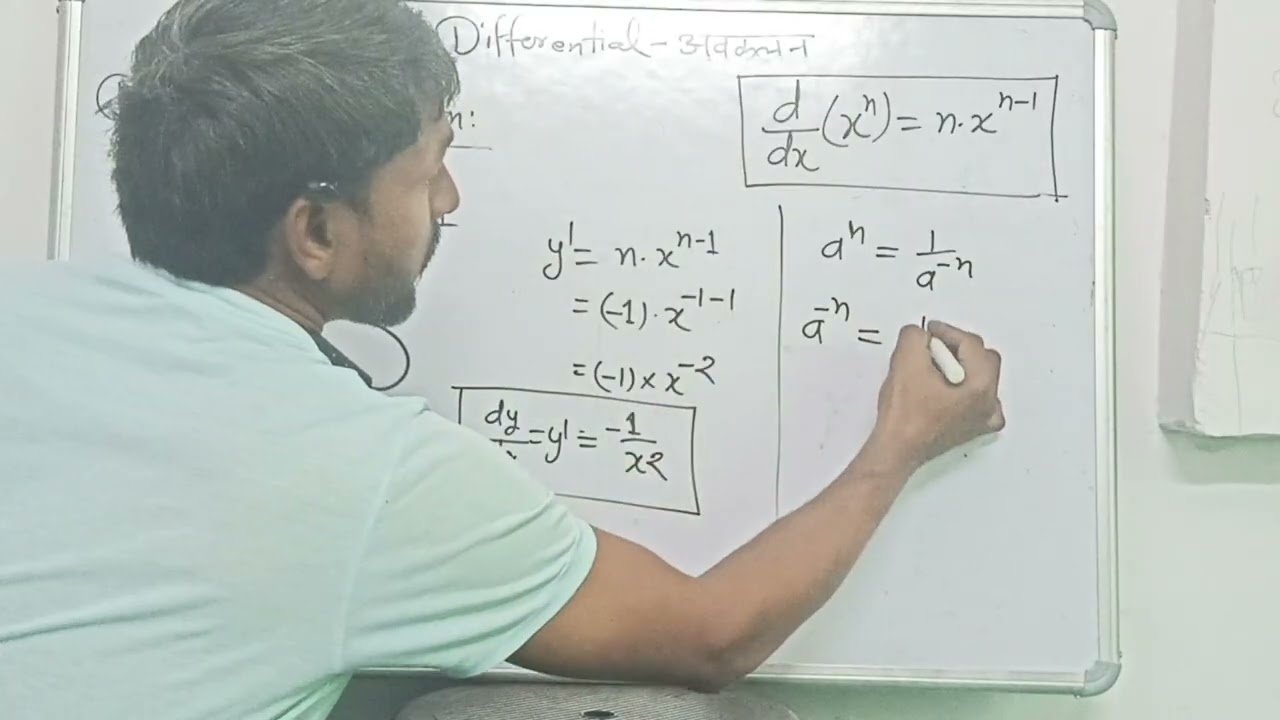 Differential - अवकलन
n:
d/dx (xⁿ) = n·xⁿ⁻¹
y' = n·xⁿ⁻¹
= (-1)·x⁻¹⁻¹
= (-1) × x⁻²
dy/dx = y' = -1/x²
aⁿ = 1/a⁻ⁿ
a⁻ⁿ =